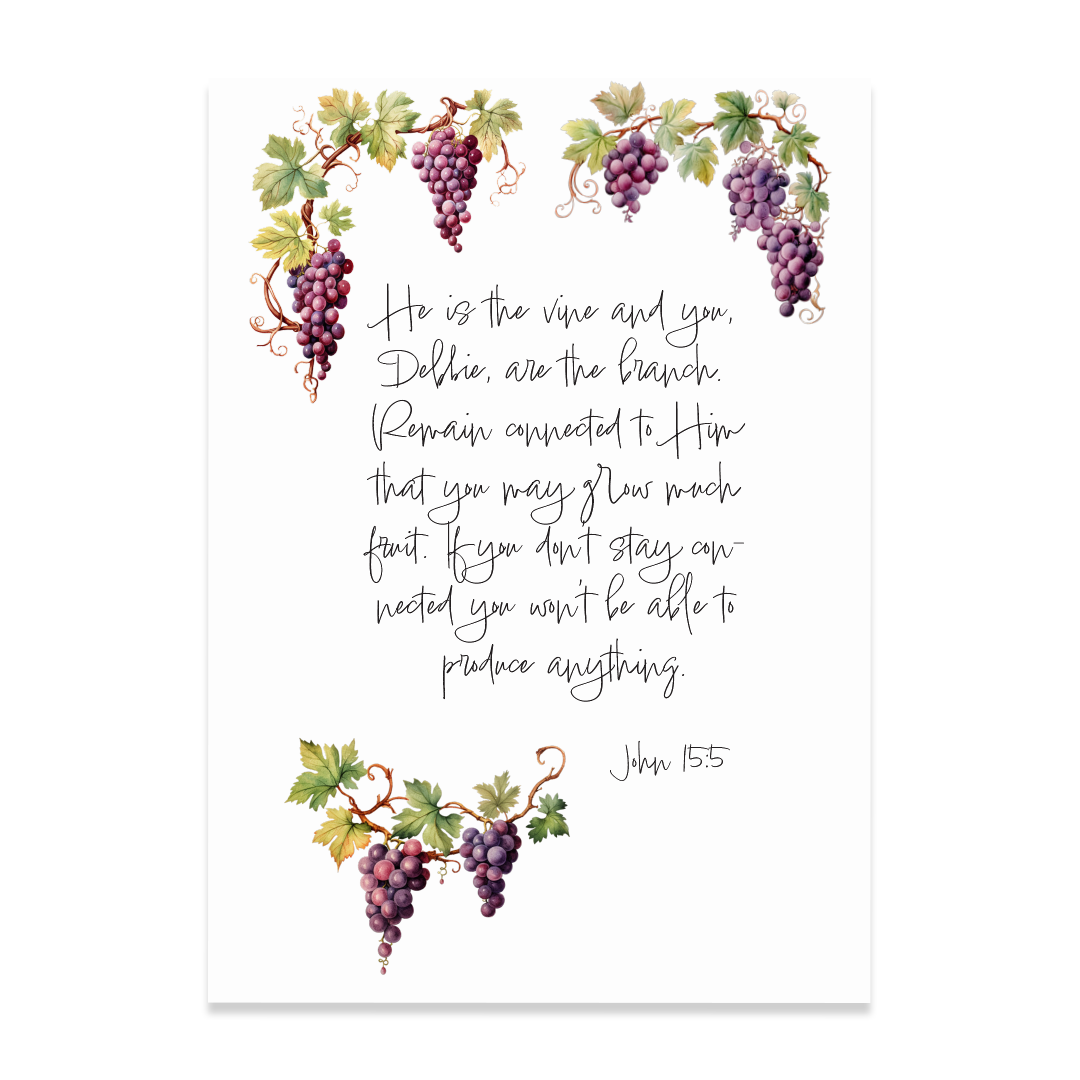 He is the vine and you,
Debbie, are the branch.
Remain connected to Him
that you may grow much
fruit. If you don't stay con-
nected you won't be able to
produce anything.
John 15:5